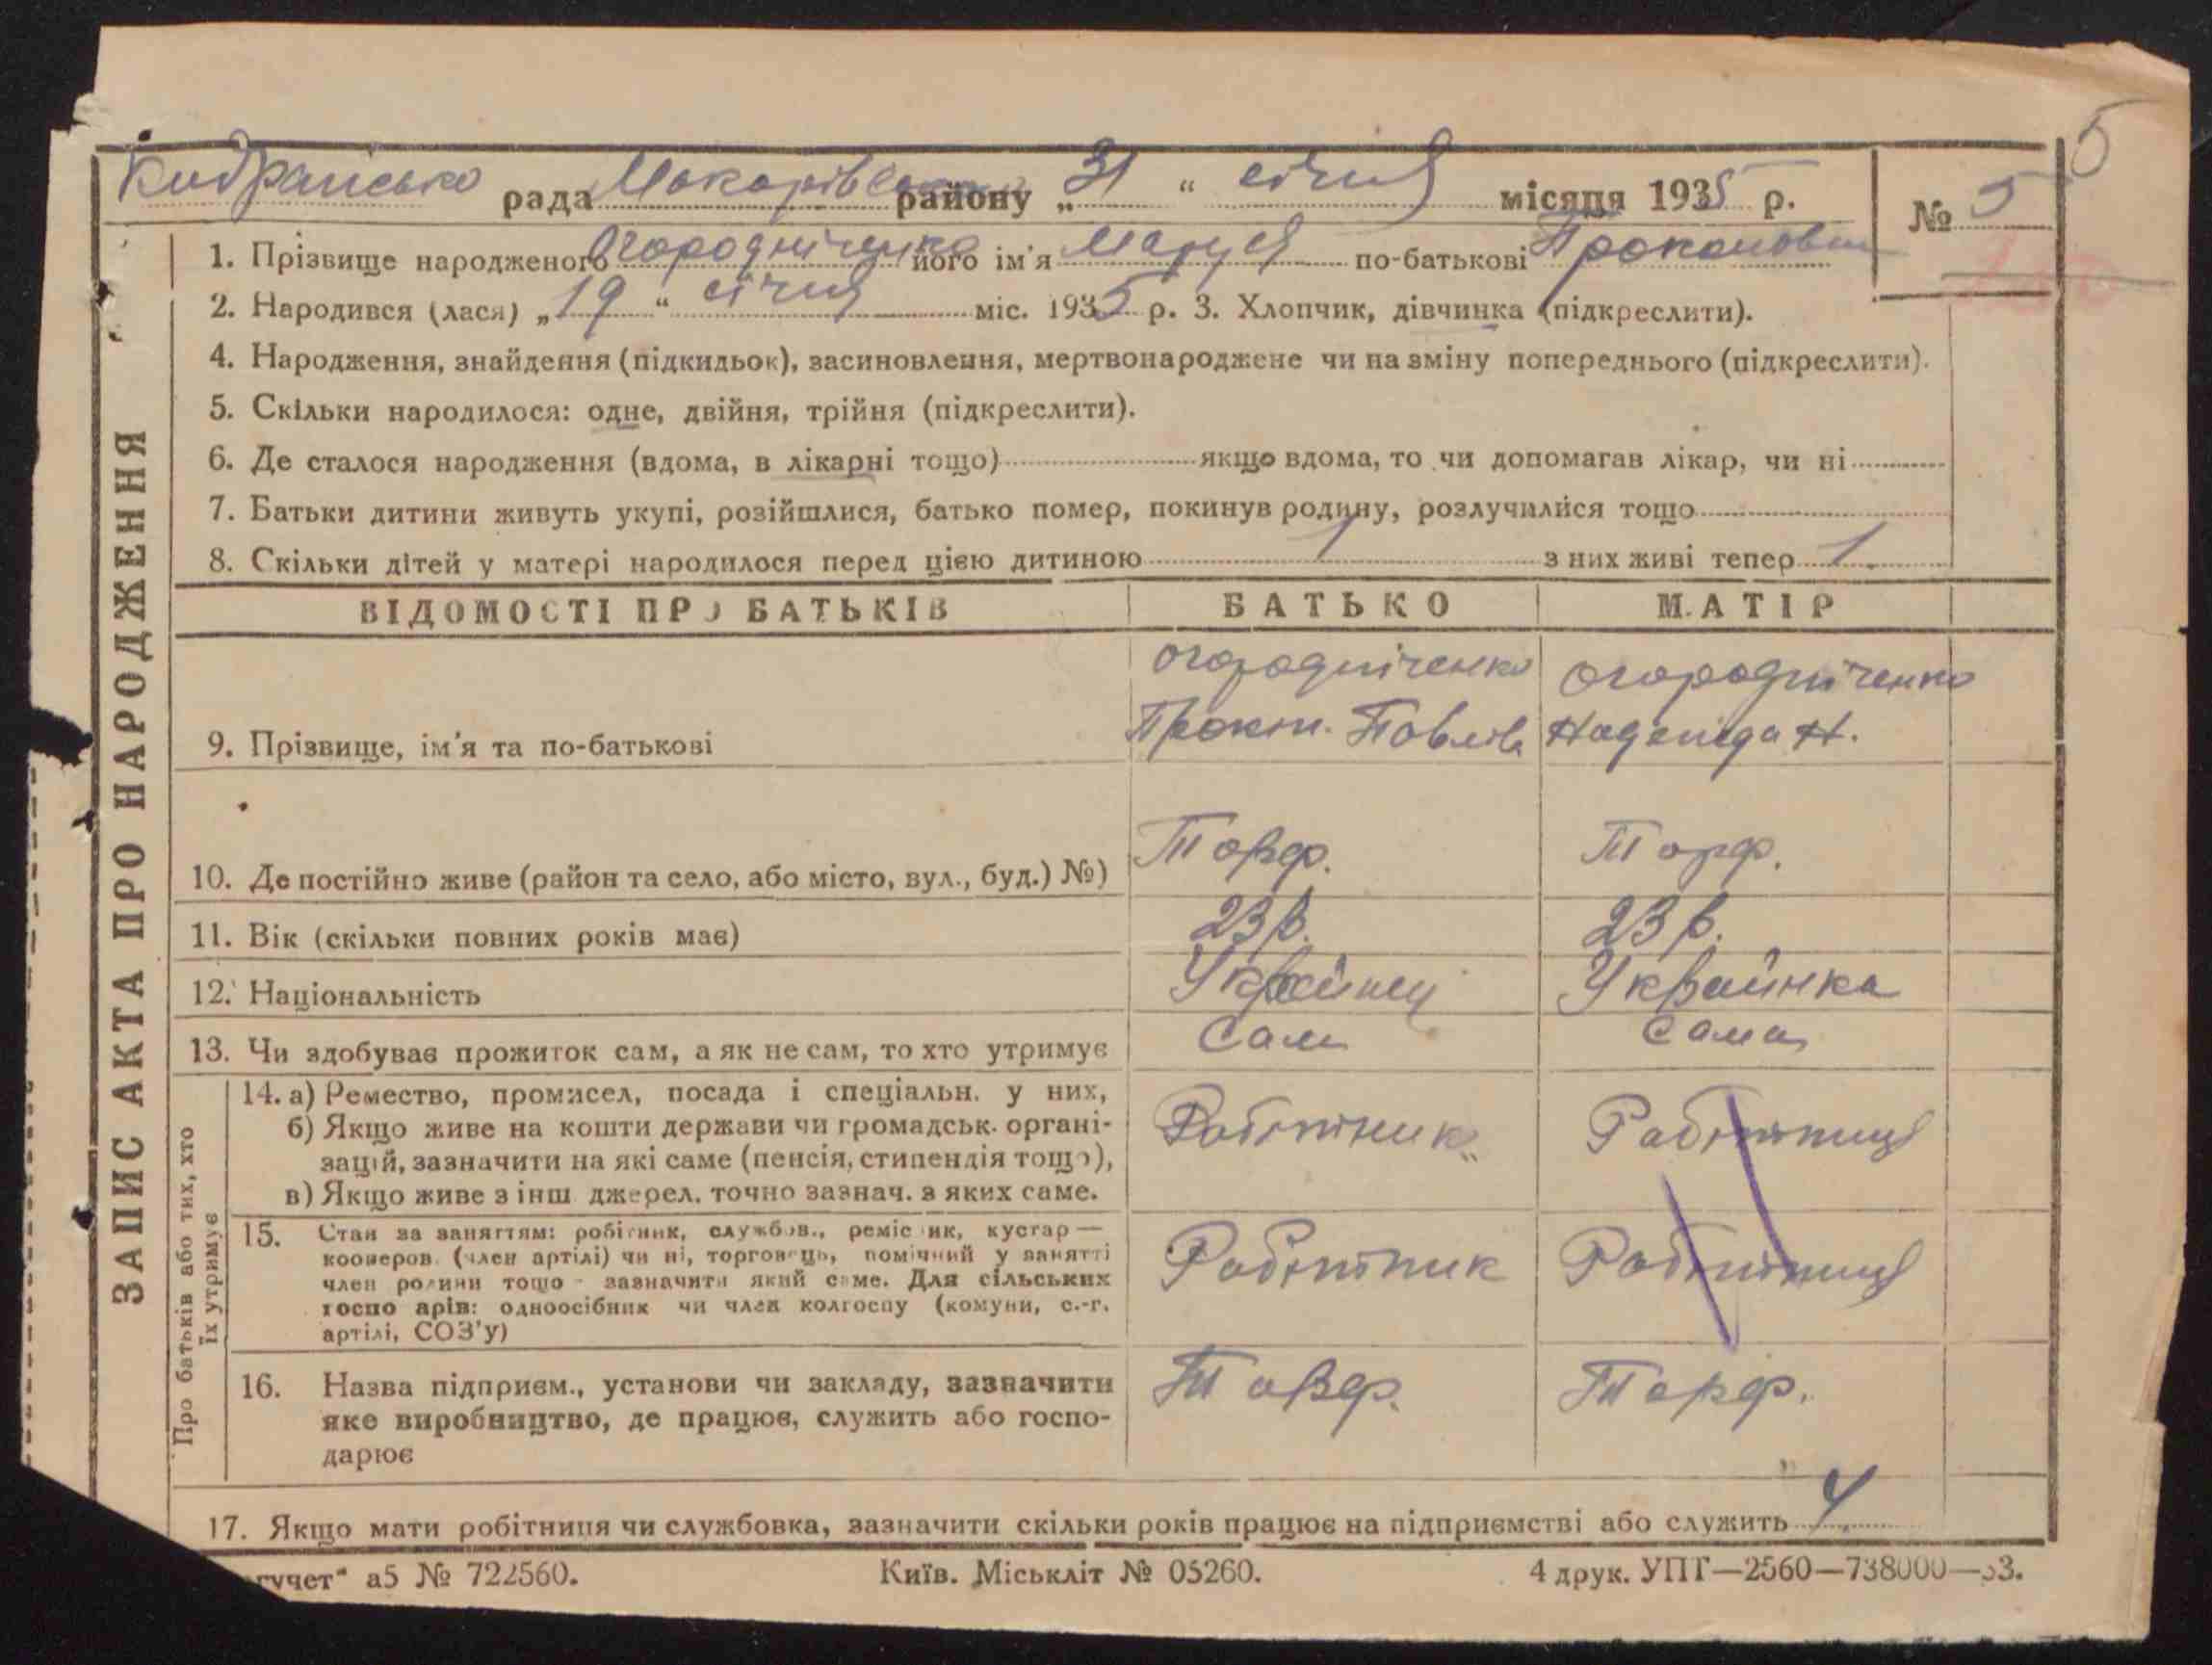 5
Кодрансько рада Макарівсько району „ 31 “ січня місяця 1935 р.
№ 5
1. Прізвище народженого Огородніченко його ім'я Маруся по-батькові
2. Народився (лася) „ 19 “ січня міс. 1935 р. 3. Хлопчик, дівчинка (підкреслити).
4. Народження, знайдення (підкидьок), засиновлення, мертвонароджене чи на зміну попереднього (підкреслити).
5. Скільки народилося: одне, двійня, трійня (підкреслити).
6. Де сталося народження (вдома, в лікарні тощо) якщо вдома, то чи допомагав лікар, чи ні
7. Батьки дитини живуть укупі, розійшлися, батько помер, покинув родину, розлучилися тощо
8. Скільки дітей у матері народилося перед цією дитиною 1 з них живі тепер 1
ВІДОМОСТІ ПРО БАТЬКІВ БАТЬКО МАТІР
Огородніченко Огородніченко
9. Прізвище, ім'я та по-батькові Прокіп. Павлов. Надежда Н.
10. Де постійно живе (район та село, або місто, вул., буд.) №) Торф. Торф.
11. Вік (скільки повних років має) 23 р. 23 р.
12. Національність Українец Українка
13. Чи здобуває прожиток сам, а як не сам, то хто утримує Сам Сама
14. а) Ремество, промисел, посада і спеціальн. у них,
б) Якщо живе на кошти держави чи громадськ. органі-
зацій, зазначити на які саме (пенсія, стипендія тощо),
в) Якщо живе з інш. джерел. точно зазнач. з яких саме.
Робітник Робітниця
15. Стан за заняттям: робітник, службов., ремісник, кустар —
кооперов. (член артілі) чи ні, торговець, помічний у занятті
член родини тощо - зазначити який саме. Для сільських
господарів: одноосібник чи член колгоспу (комуни, с.-г.
артілі, СОЗ'у)
Робітник Робітниця
16. Назва підприєм., установи чи закладу, зазначити
яке виробництво, де працює, служить або госпо-
дарює
Торф. Торф.
17. Якщо мати робітниця чи службовка, зазначити скільки років працює на підприємстві або служить 4
ЗАПИС АКТА ПРО НАРОДЖЕННЯ
Про батьків або тих, хто
їх утримує
гучет“ а5 № 722560. Київ. Міськліт № 05260. 4 друк. УПГ—2560—738000—33.